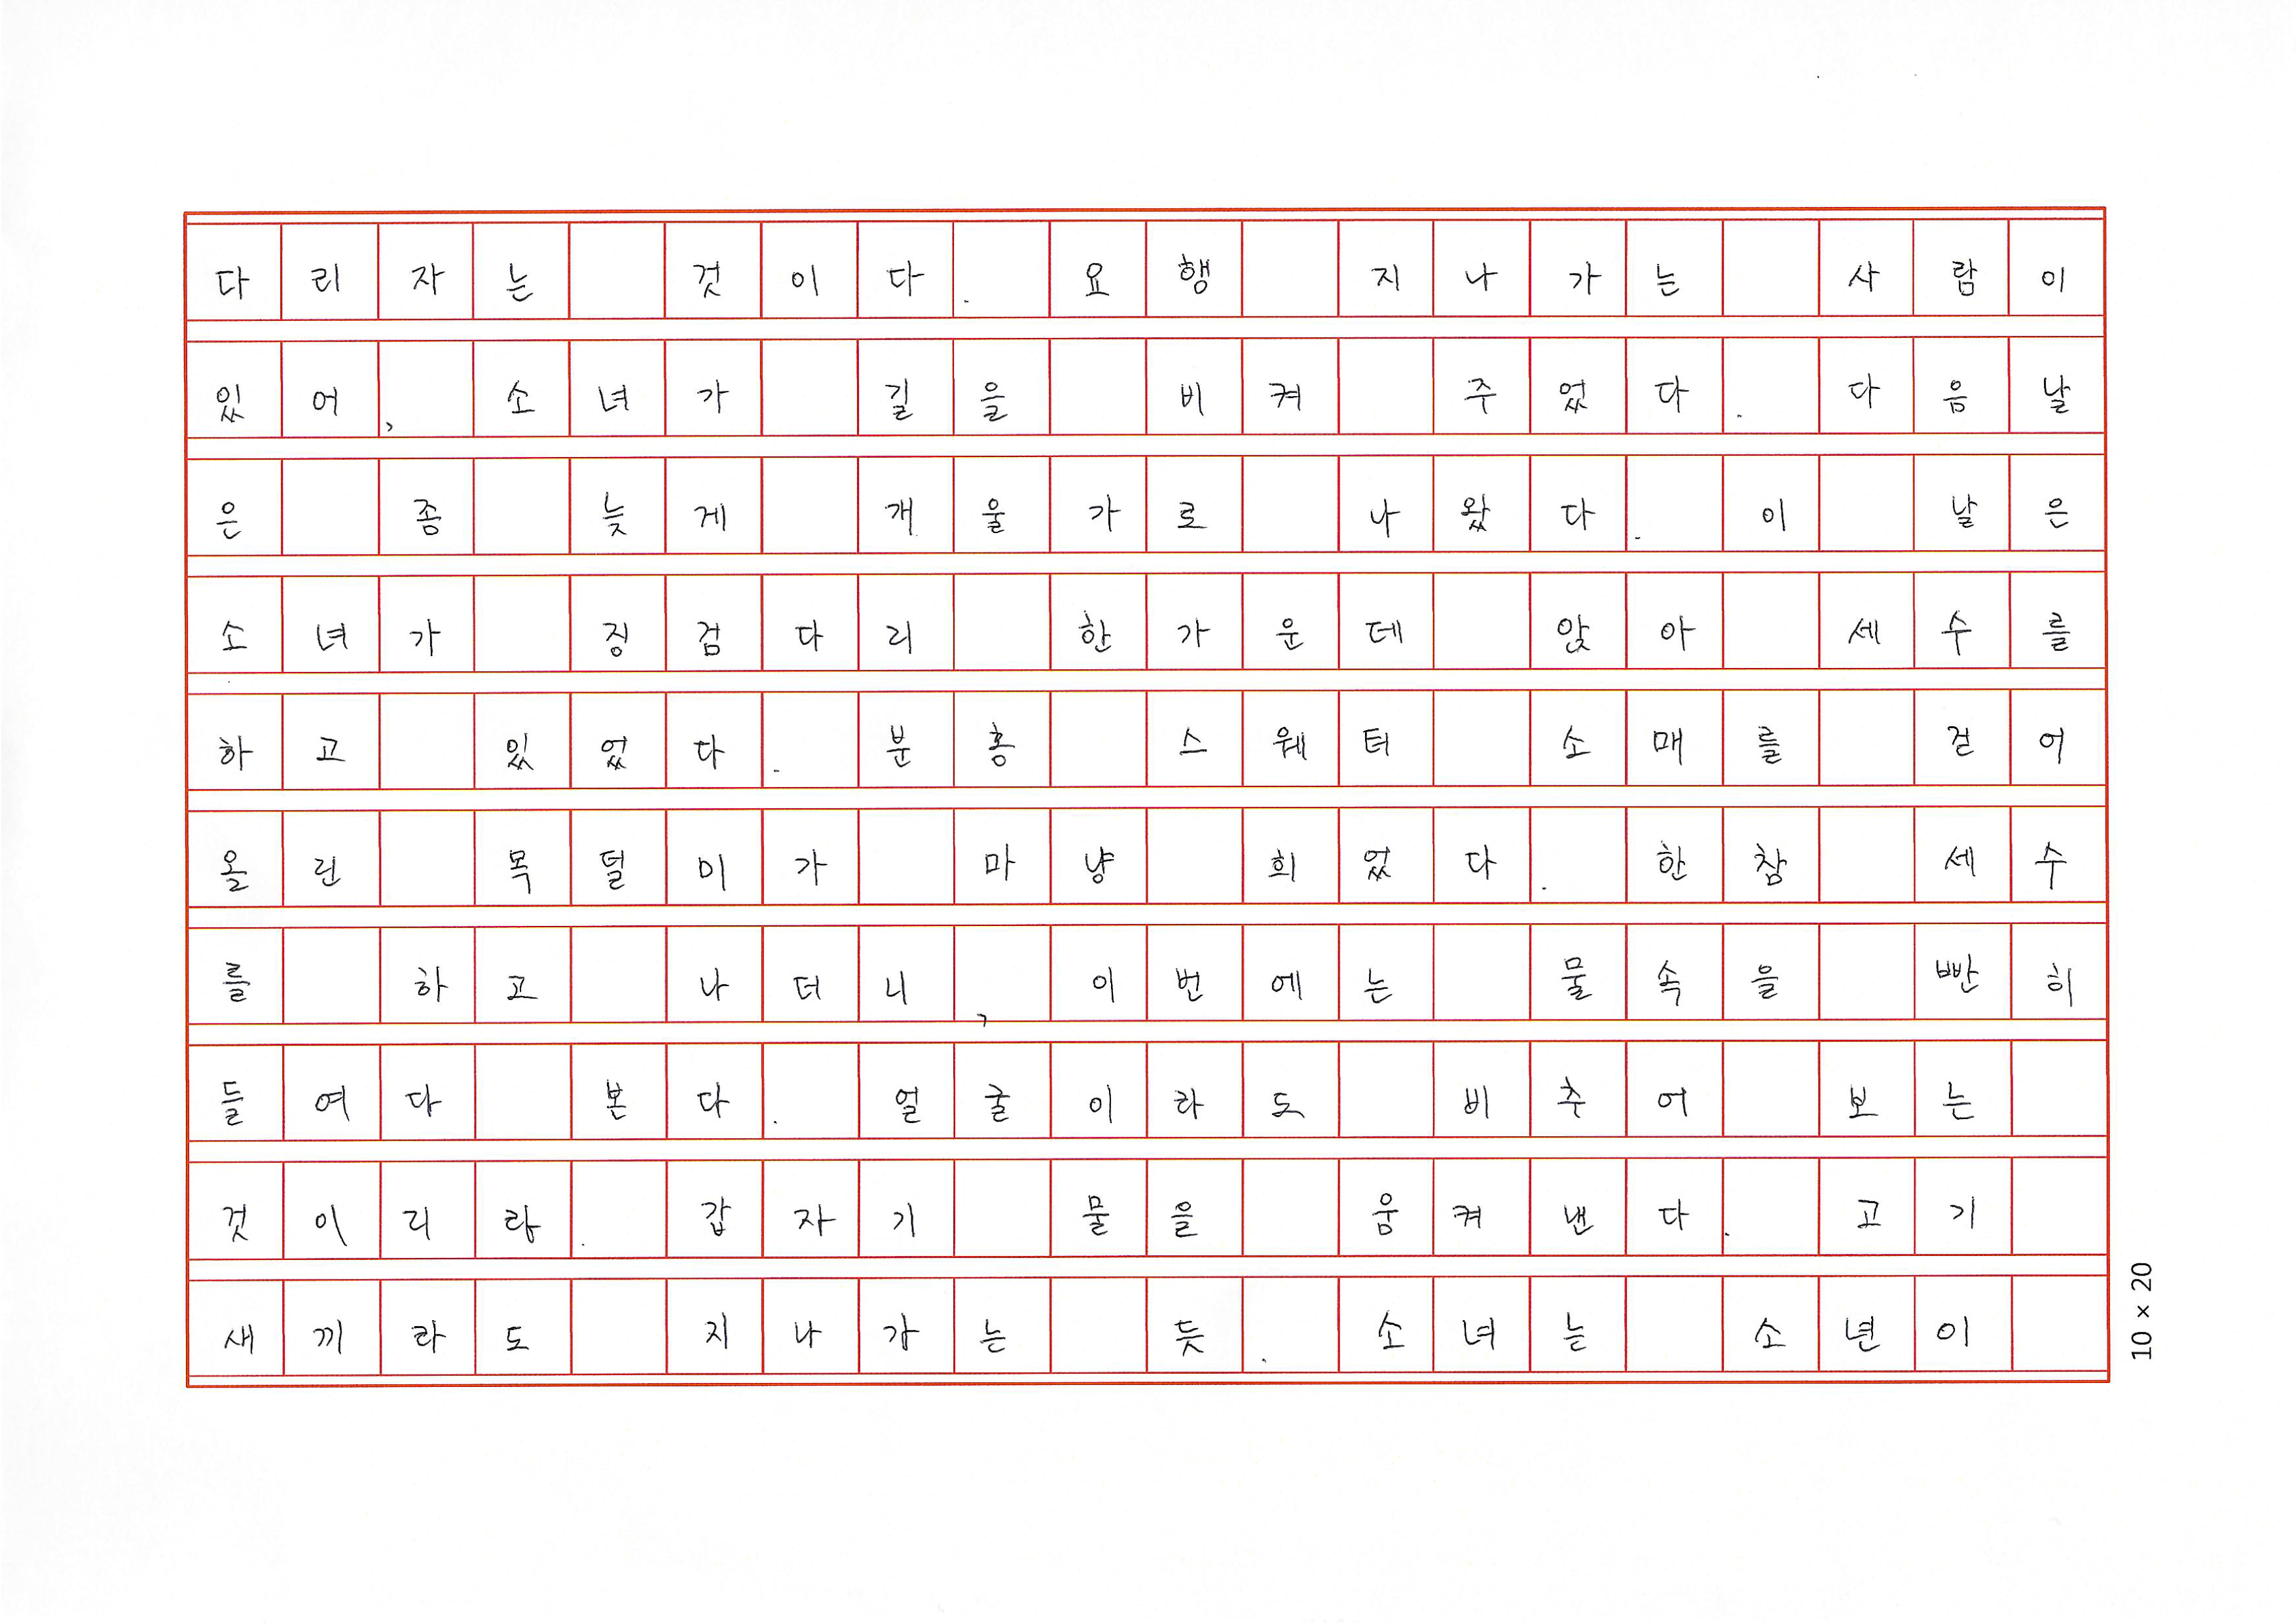 다리자는 것이다. 요행 지나가는 사람이
있어, 소녀가 길을 비켜 주었다. 다음날
은 좀 늦게 개울가로 나왔다. 이 날은
소녀가 징검다리 한가운데 앉아 세수를
하고 있었다. 분홍 스웨터 소매를 걷어
올린 목덜이가 마냥 희었다. 한참 세수
를 하고 나더니, 이번에는 물속을 빤히
들여다 본다. 얼굴이라도 비추어 보는
것이리라. 갑자기 물을 움켜낸다. 고기
새끼라도 지나가는 듯. 소녀는 소년이
10 × 20